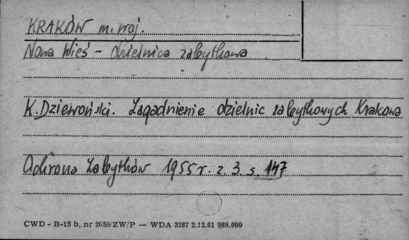 KRAKÓW m. woj.
Nowa Wieś - dzielnica zabytkowa
K. Dziewoński. Zagadnienie dzielnic zabytkowych Krakowa
Ochrona Zabytków 1955 r. z. 3. s. 147
CWD - B-15 b, nr 2650/ZW/P — WDA 3287 2.12.61 989.000